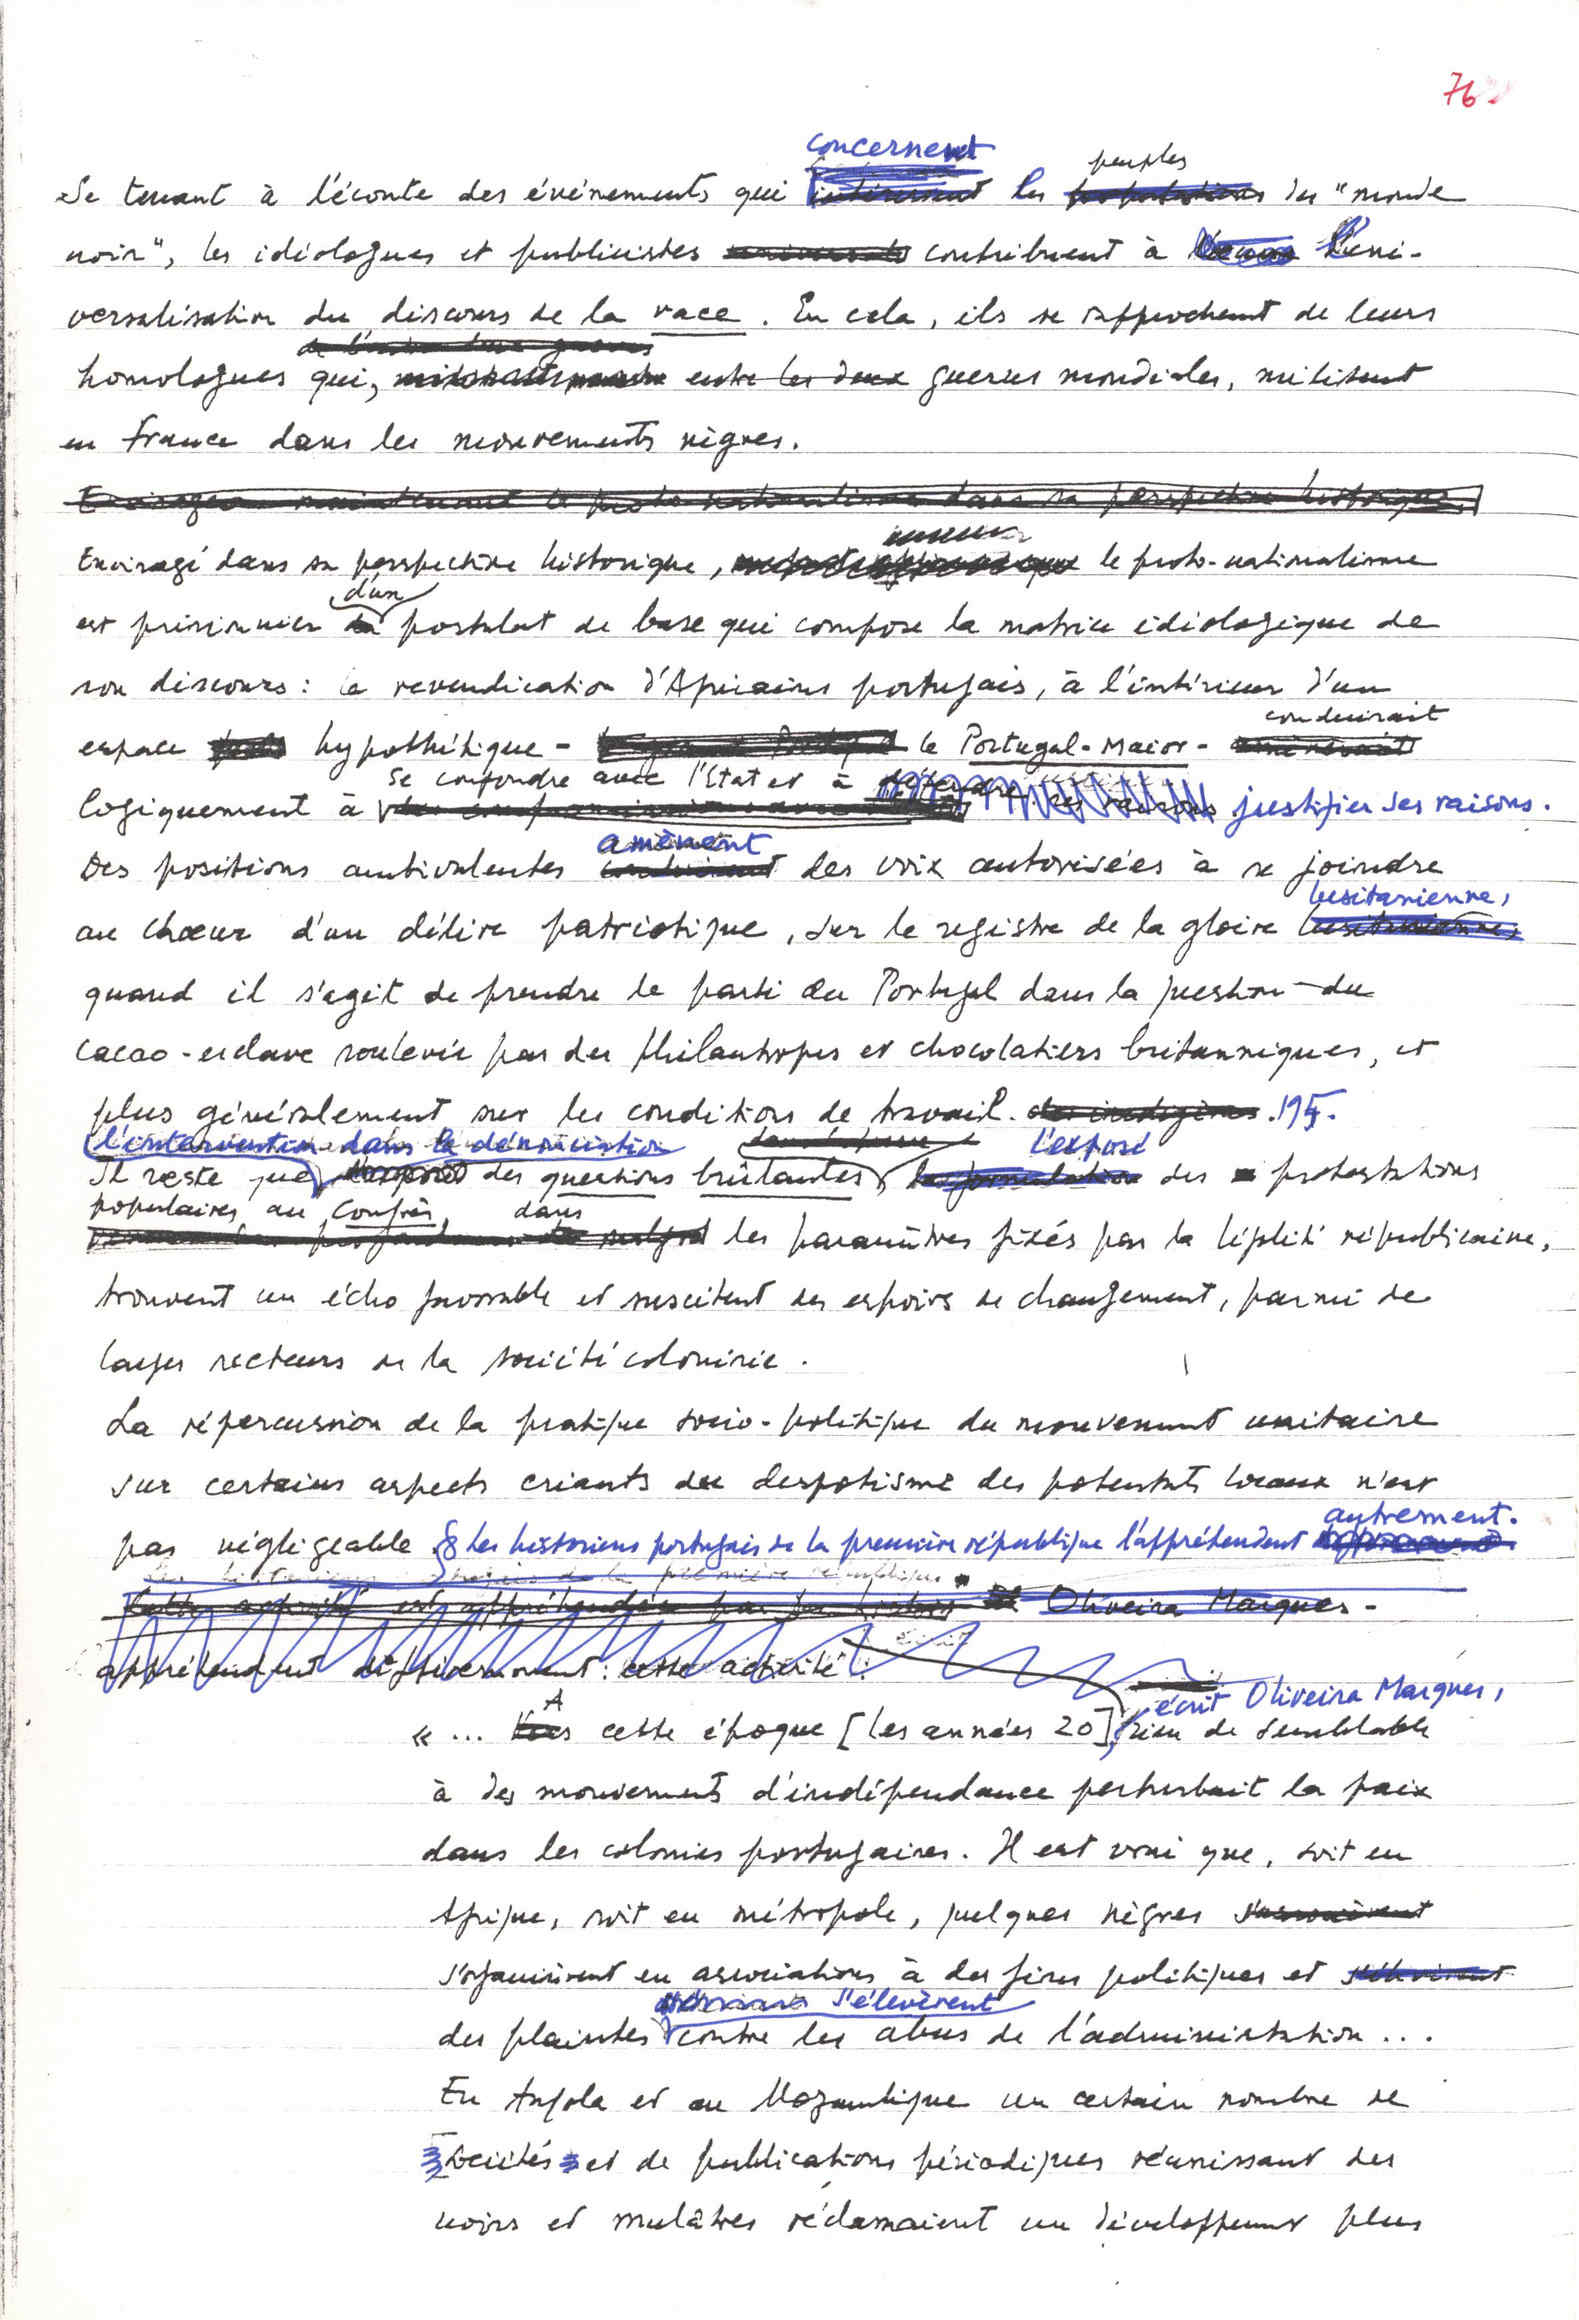 76
concernent
peuples
Se tenant à l'écoute des événements qui intéressent les populations du "monde
noir", les idéologues et publicistes contribuent à l'uni-
versalisation du discours de la race. En cela, ils se rapprochent de leurs
homologues qui, entre les deux guerres mondiales, militent
en France dans les mouvements nègres.
Envisageons maintenant le proto-nationalisme dans sa perspective historique.
Envisagé dans sa perspective historique, le proto-nationalisme
d'un
est prisonnier du postulat de base qui compose la matrice idéologique de
son discours: la revendication d'Africains portugais, à l'intérieur d'un
conduirait
espace hypothétique - le Portugal-Maior -
se confondre avec l'Etat et à défendre ses raisons
logiquement à justifier ses raisons.
amènent
Des positions ambivalentes conduisent des voix autorisées à se joindre
lusitanienne,
au chœur d'un délire patriotique, sur le registre de la gloire lusitanienne,
quand il s'agit de prendre le parti du Portugal dans la question du
cacao-esclave soulevée par des philantropes et chocolatiers britanniques, et
plus généralement sur les conditions de travail. des indigènes.
l'intervention dans la dénonciation
l'exposé
Il reste que l'exposé des questions brûlantes, la formulation des protestations
populaires au Congrès, dans
les paramètres fixés par la légalité républicaine,
trouvent un écho favorable et suscitent des espoirs de changement, parmi de
larges secteurs de la société colonisée.
La répercussion de la pratique socio-politique du mouvement unitaire
sur certains aspects criants du despotisme des potentats locaux n'est
autrement.
pas négligeable. Les historiens portugais de la première république l'appréhendent
les historiens portugais de la première république
Cette activité est appréhendée par Oliveira Marques -
appréhendent différemment: cette activité:
écrit Oliveira Marques,
A
« ... cette époque [les années 20], rien de semblable
à des mouvements d'indépendance perturbait la paix
dans les colonies portugaises. Il est vrai que, soit en
Afrique, soit en métropole, quelques nègres
s'organisèrent en associations à des fins politiques et s'élevèrent
s'élevèrent
des plaintes contre les abus de l'administration ...
En Angola et au Mozambique un certain nombre de
sociétés et de publications périodiques réunissant des
noirs et mulâtres réclamaient un développement plus